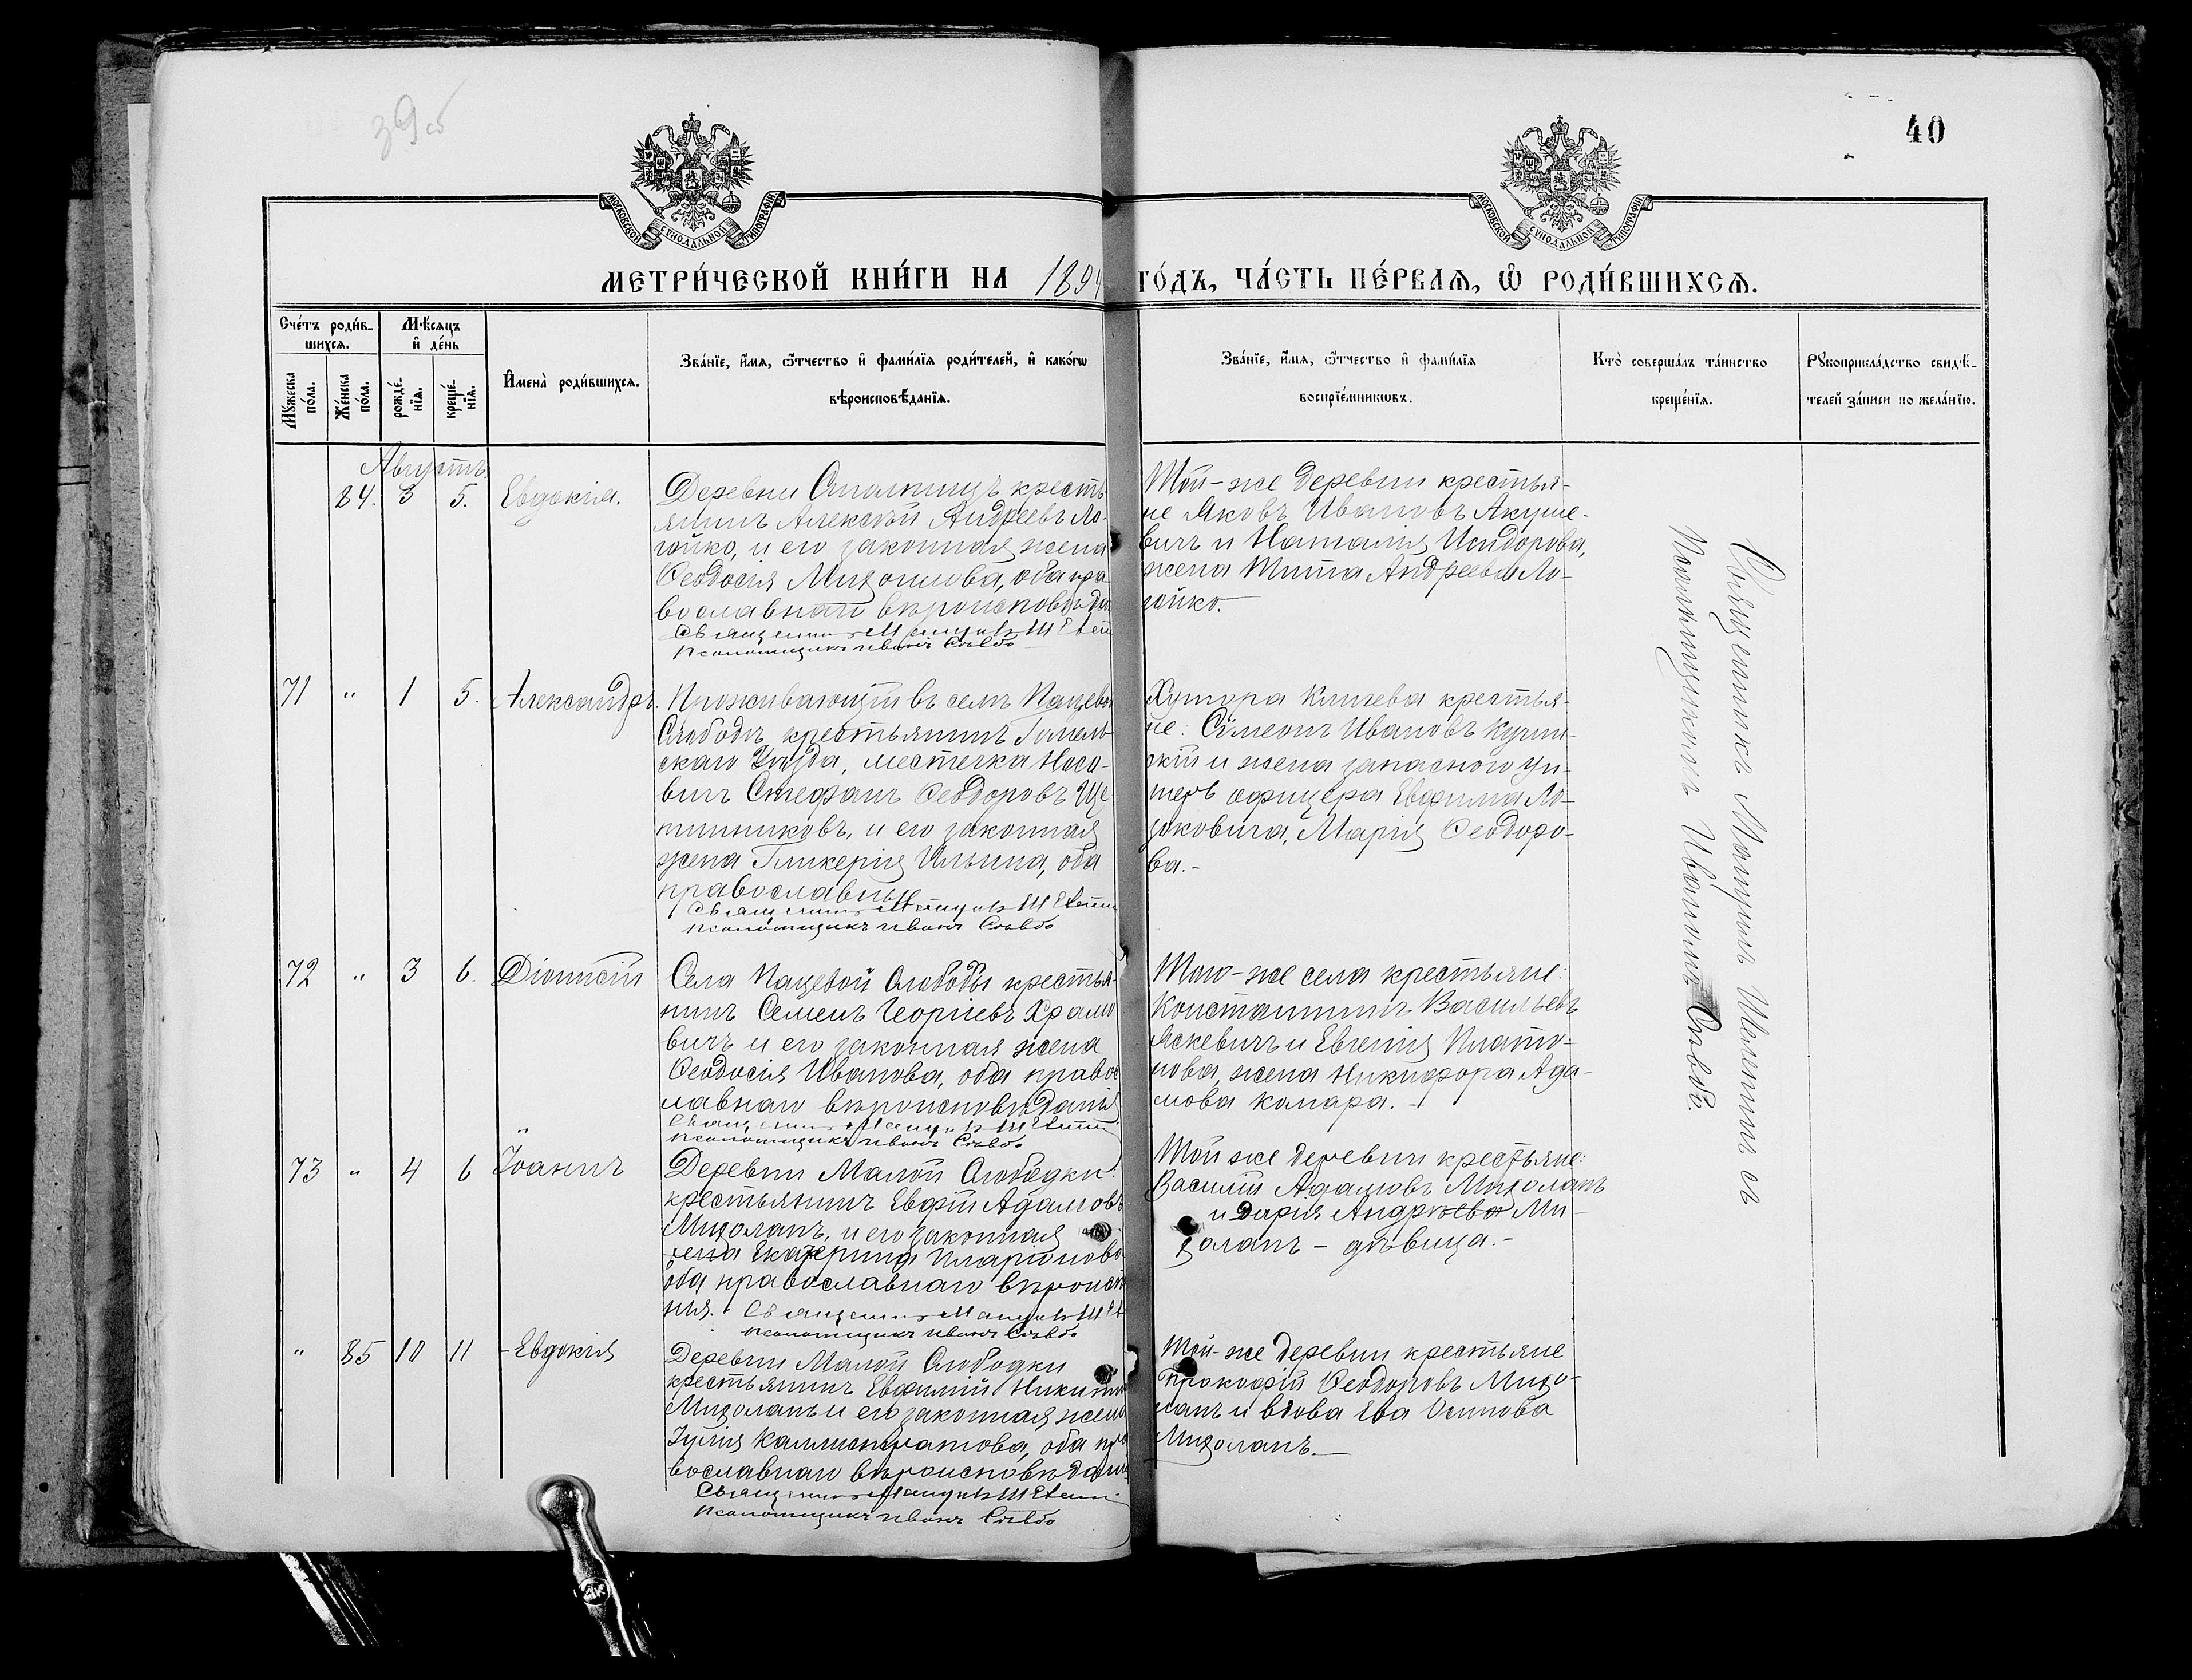 39 об
40
МОСКОВСКОЙ СѴНОДАЛЬНОЙ ТИПОГРАФІИ
МОСКОВСКОЙ СѴНОДАЛЬНОЙ ТИПОГРАФІИ
МЕТРИ́ЧЕСКОЙ КНИ́ГИ НА 1894 ГО́ДЪ, ЧА́СТЬ ПЕ́РВАѦ, Ѡ РОДИ́ВШИХСѦ.
Сче́тъ роди́в-
шихсѧ.
Мꙋ́жеска
по́ла.
Же́нска
по́ла.
Мѣ́сѧцъ
и де́нь
рожде́-
нїѧ.
креще́-
нїѧ.
Имена̀ роди́вшихсѧ.
Зва́нїе, и́мѧ, ѻ́тчество и фами́лїѧ роди́телей, и како́гѡ
вѣроисповѣ́данїѧ.
Зва́нїе, и́мѧ, ѻ́тчество и фами́лїѧ
воспрїе́мникѡвъ.
Кто̀ соверша́лъ та́инство
креще́нїѧ.
Рꙋкоприкла́дство свидѣ́-
телей за́писи по жела́нїю.
Августъ
84. 3 5. Евдокія.
Деревни крестья-
янинъ Алексѣй Андреевъ Ло-
гойко, и его законная жена
Ѳеодосія, оба пра-
вославнаго вѣроисповѣда
Священникъ
Псаломщикъ Иванъ
Той-же деревни крестья-
не Яковъ Ивановъ Акуше-
вичъ и Наталія Исидорова,
жена Тита Андреева Ло-
гойко.
71 " 1 5. Александръ.
Проживающій въ селѣ Пацевой
Слободѣ крестьянинъ Гомель-
скаго Уѣзда, местечка Носо-
вичъ Стефанъ Ѳеодоровъ Ще-
тинниковъ, и его законная
жена Гликерія Ильина, оба
православны
Священникъ
Псаломщикъ Иванъ
Хутора Кличева крестья-
не: Симеонъ Ивановъ
и жена запаснаго ун-
теръ офицера Евфимія Ло-
зоковича, Марія Ѳеодоро-
ва.-
72 " 3 6. Діонисій
Села Пацевой Слободы крестья-
нинъ Семенъ Георгіевъ Храмо
вичъ и его законная жена
Ѳеодосія Иванова, оба правос
лавнаго вѣроисповѣданія
Священникъ
Псаломщикъ Иванъ
Того-же села крестьяне:
Константинъ Васильевъ
Яскевичъ и Евгенія Плато-
нова, жена Никифора Ада-
мова Комара.-
73 " 4 6 Іоаннъ
Деревни Малой Слободки
крестьянинъ Евфій Адамовъ
Мизоланъ, и его законная
жена Екатерина Иларіонова
оба православнаго вѣроиспо
нія. Священникъ
Псаломщикъ Иванъ
Той же деревни крестьяне:
Василій Адамовъ Мизоланъ
и Дарія Андреева Ми-
золанъ - дѣвица.-
" 85 10 11 Евдокія
Деревни Малой Слободки
крестьянинъ Евфимій Никитин
Мизоланъ и его законная жена
Іулія Каллистратова, оба пра
вославнаго вѣроисповѣдані
Священникъ
Псаломщикъ Иванъ
Той-же деревни крестьяне
Прокофій Ѳеодоровъ Мизо-
ланъ и вдова Ева Осипова
Мизоланъ.-
Священникъ съ
Псаломщикомъ Иваномъ